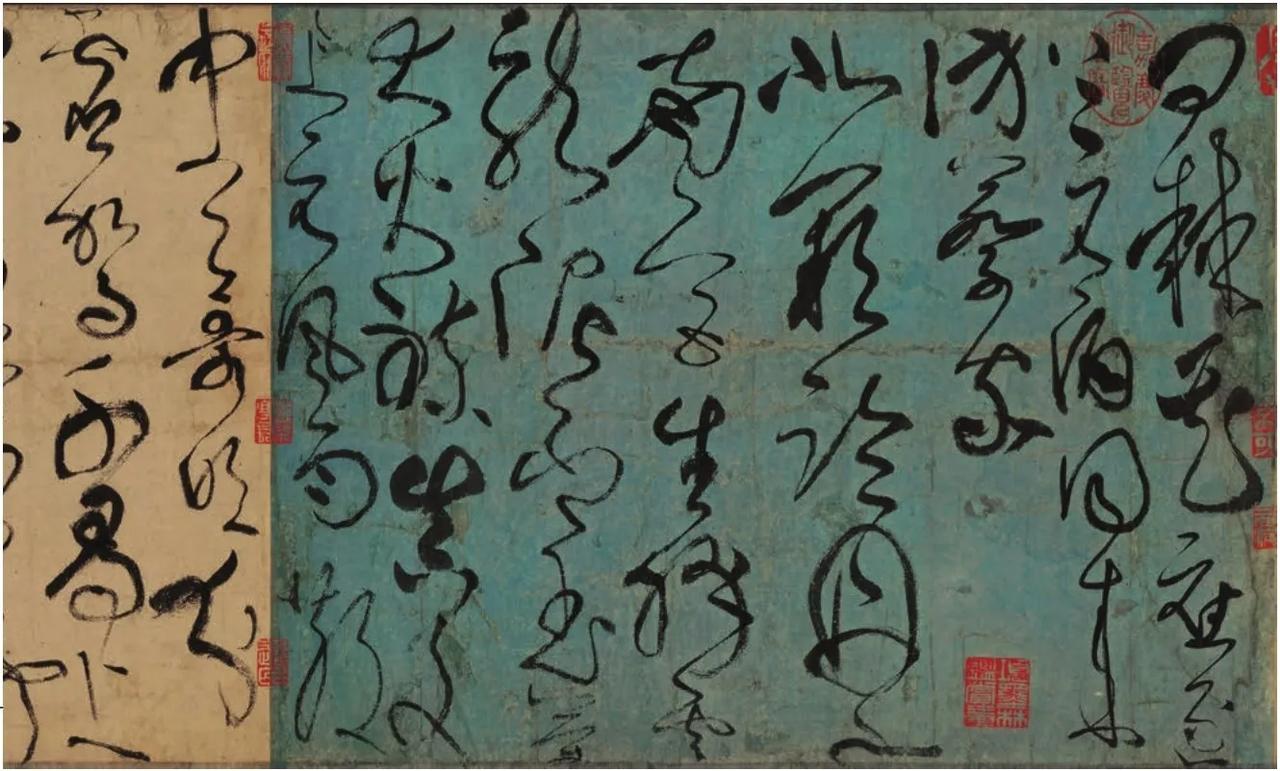 問棘花應逐
上元酒同來
訪蔡家
北闕臨丹水
南宮生絳雲
龍泥印玉簡
大火煉真文
上元風雨散
中天歌吹分
靈駕千尋上